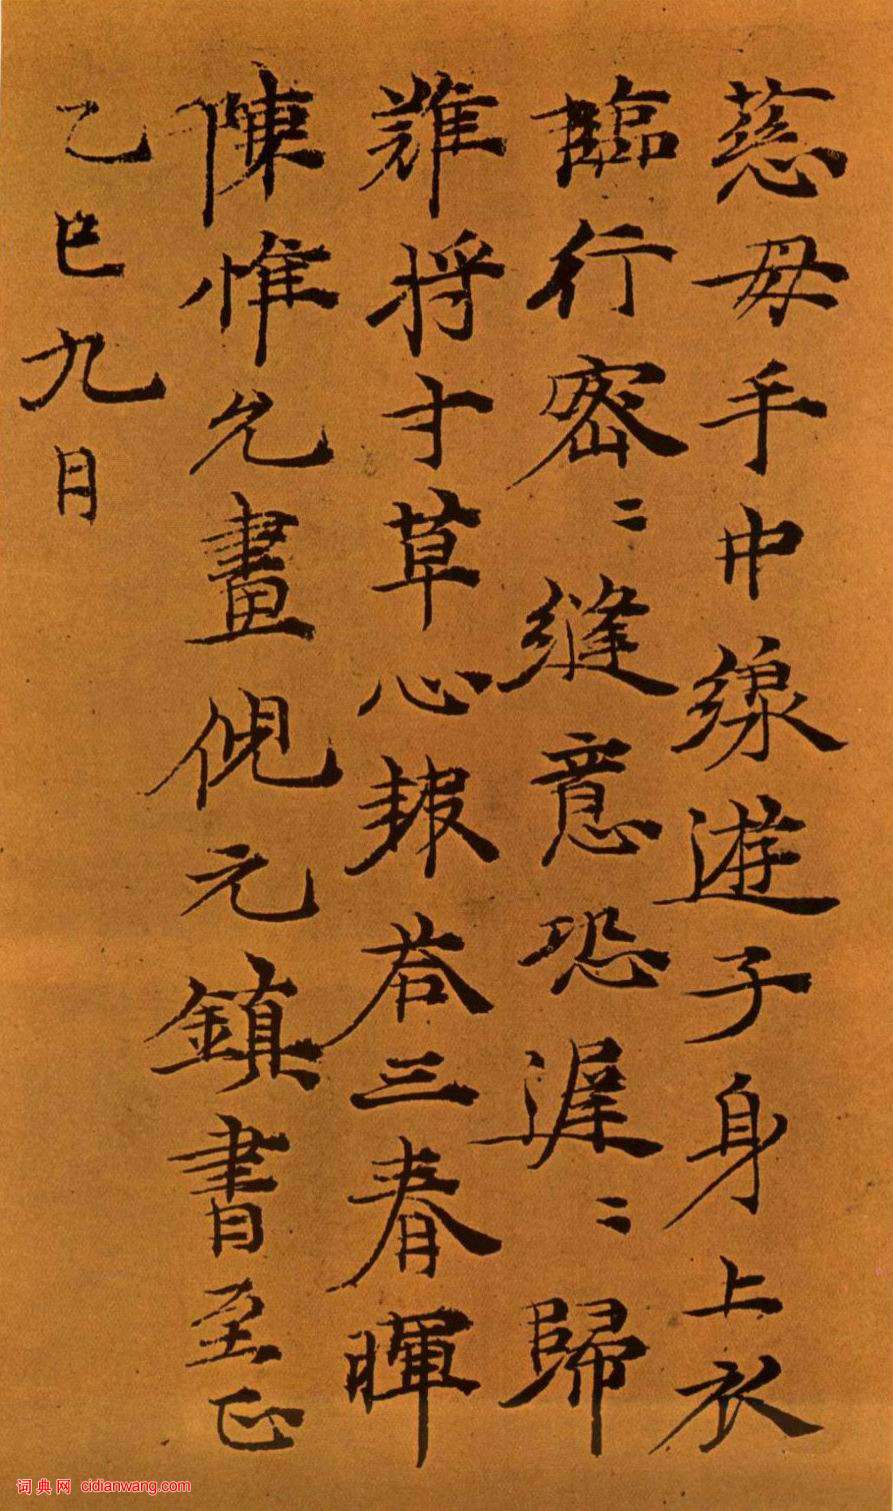 慈母手中線遊子身上衣
臨行密〻縫意恐遲〻歸
難將寸草心報荅三春暉
陳惟允畫倪元鎮書至正
乙巳九月
词典网 cidianwang.com